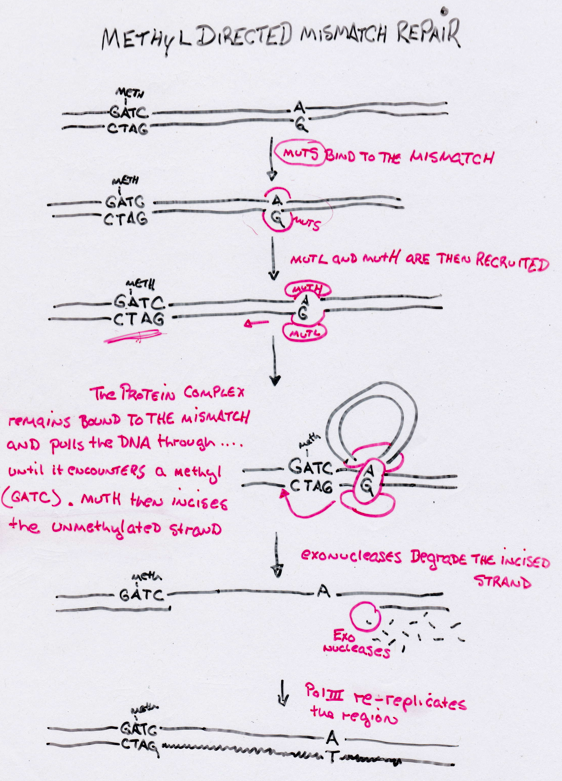 METHYL DIRECTED MISMATCH REPAIR
METH
GATC A
CTAG G
MUTS BIND TO THE MISMATCH
METH
GATG A
CTAG G MUTS
MUTL AND MUTH ARE THEN RECRUITED
METH MUTH
GATC A
CTAG G
MUTL
The PROTEIN COMPLEX
remains BOUND TO THE MISMATCH
AND pulls the DNA through ....
until it encounters a methyl
(GATC). MUTH then incises
the UNMETHYLATED STRAND
meth
GATC A
CTAG G
exonucleases DEGRADE THE INCISED
STRAND
meth
GATC A
Exo
Nucleases
Pol III re-replicates
the region
meth
GATG A
CTAG T